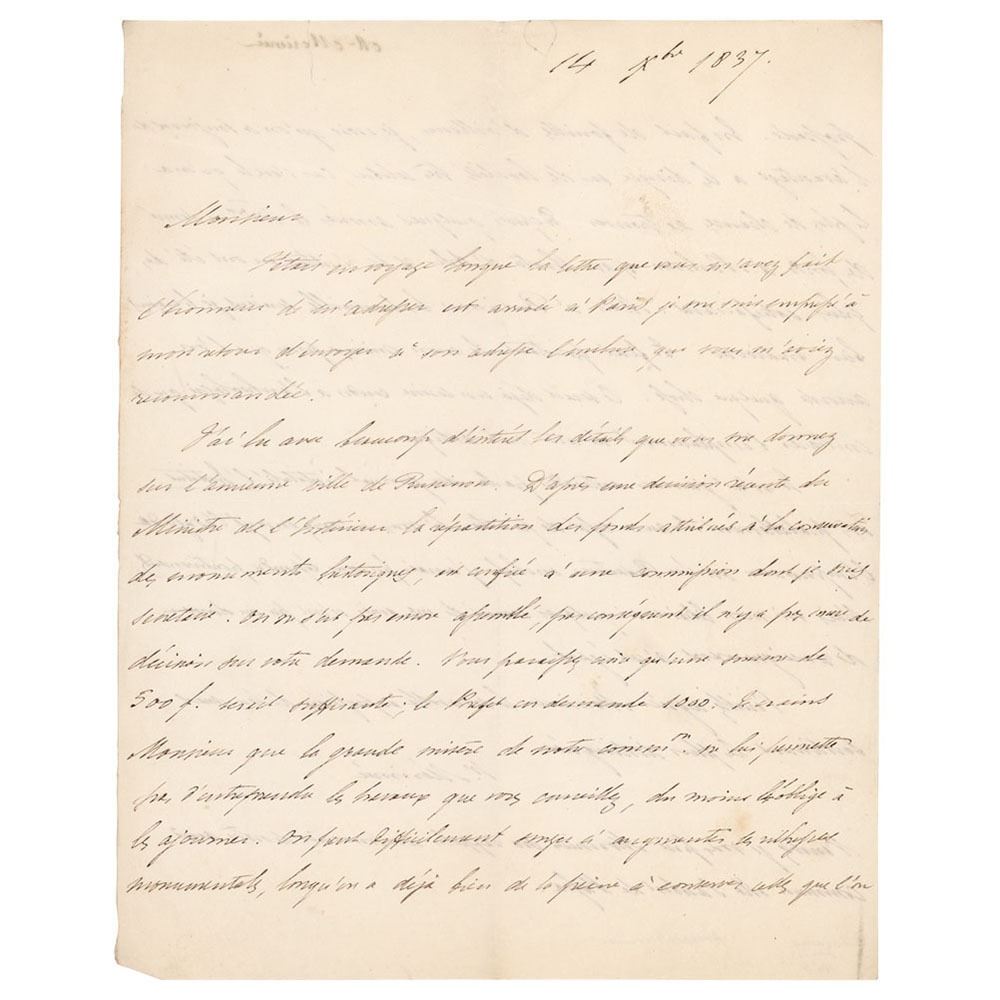 14 Xbre 1837.
Monsieur
J'étais en voyage lorsque la lettre que vous m'avez fait
l'honneur de m'adresser est arrivée à Paris je me suis empressé à
mon retour d'envoyer à son adresse l'incluse que vous m'aviez
recommandée.
J'ai lu avec beaucoup d'intérêt les détails que vous me donnez
sur l'ancienne ville de . D'après une décision récente du
Ministre de l'Intérieur la répartition des fonds attribués à la conservation
des monuments historiques, est confiée à une commission dont je suis
secrétaire. On ne s'est pas encore assemblé, par conséquent il n'y a pas encore de
décision sur votre demande. Vous paraissez croire qu'une somme de
500 f. serait suffisante; le Préfet en demande 1000. Je crains
Monsieur que la grande misère de notre common. ne lui permette
pas d'entreprendre les travaux que vous conseillez, du moins l'oblige à
les ajourner. On peut difficilement songer à augmenter les richesses
monumentales, lorsqu'on a déjà bien de la peine à conserver celles que l'on